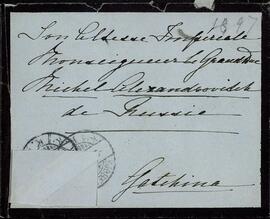 1897
Son Altesse Impériale
Monseigneur le Grand Duc
Michel Alexandrovitch
de Russie
Gatchina